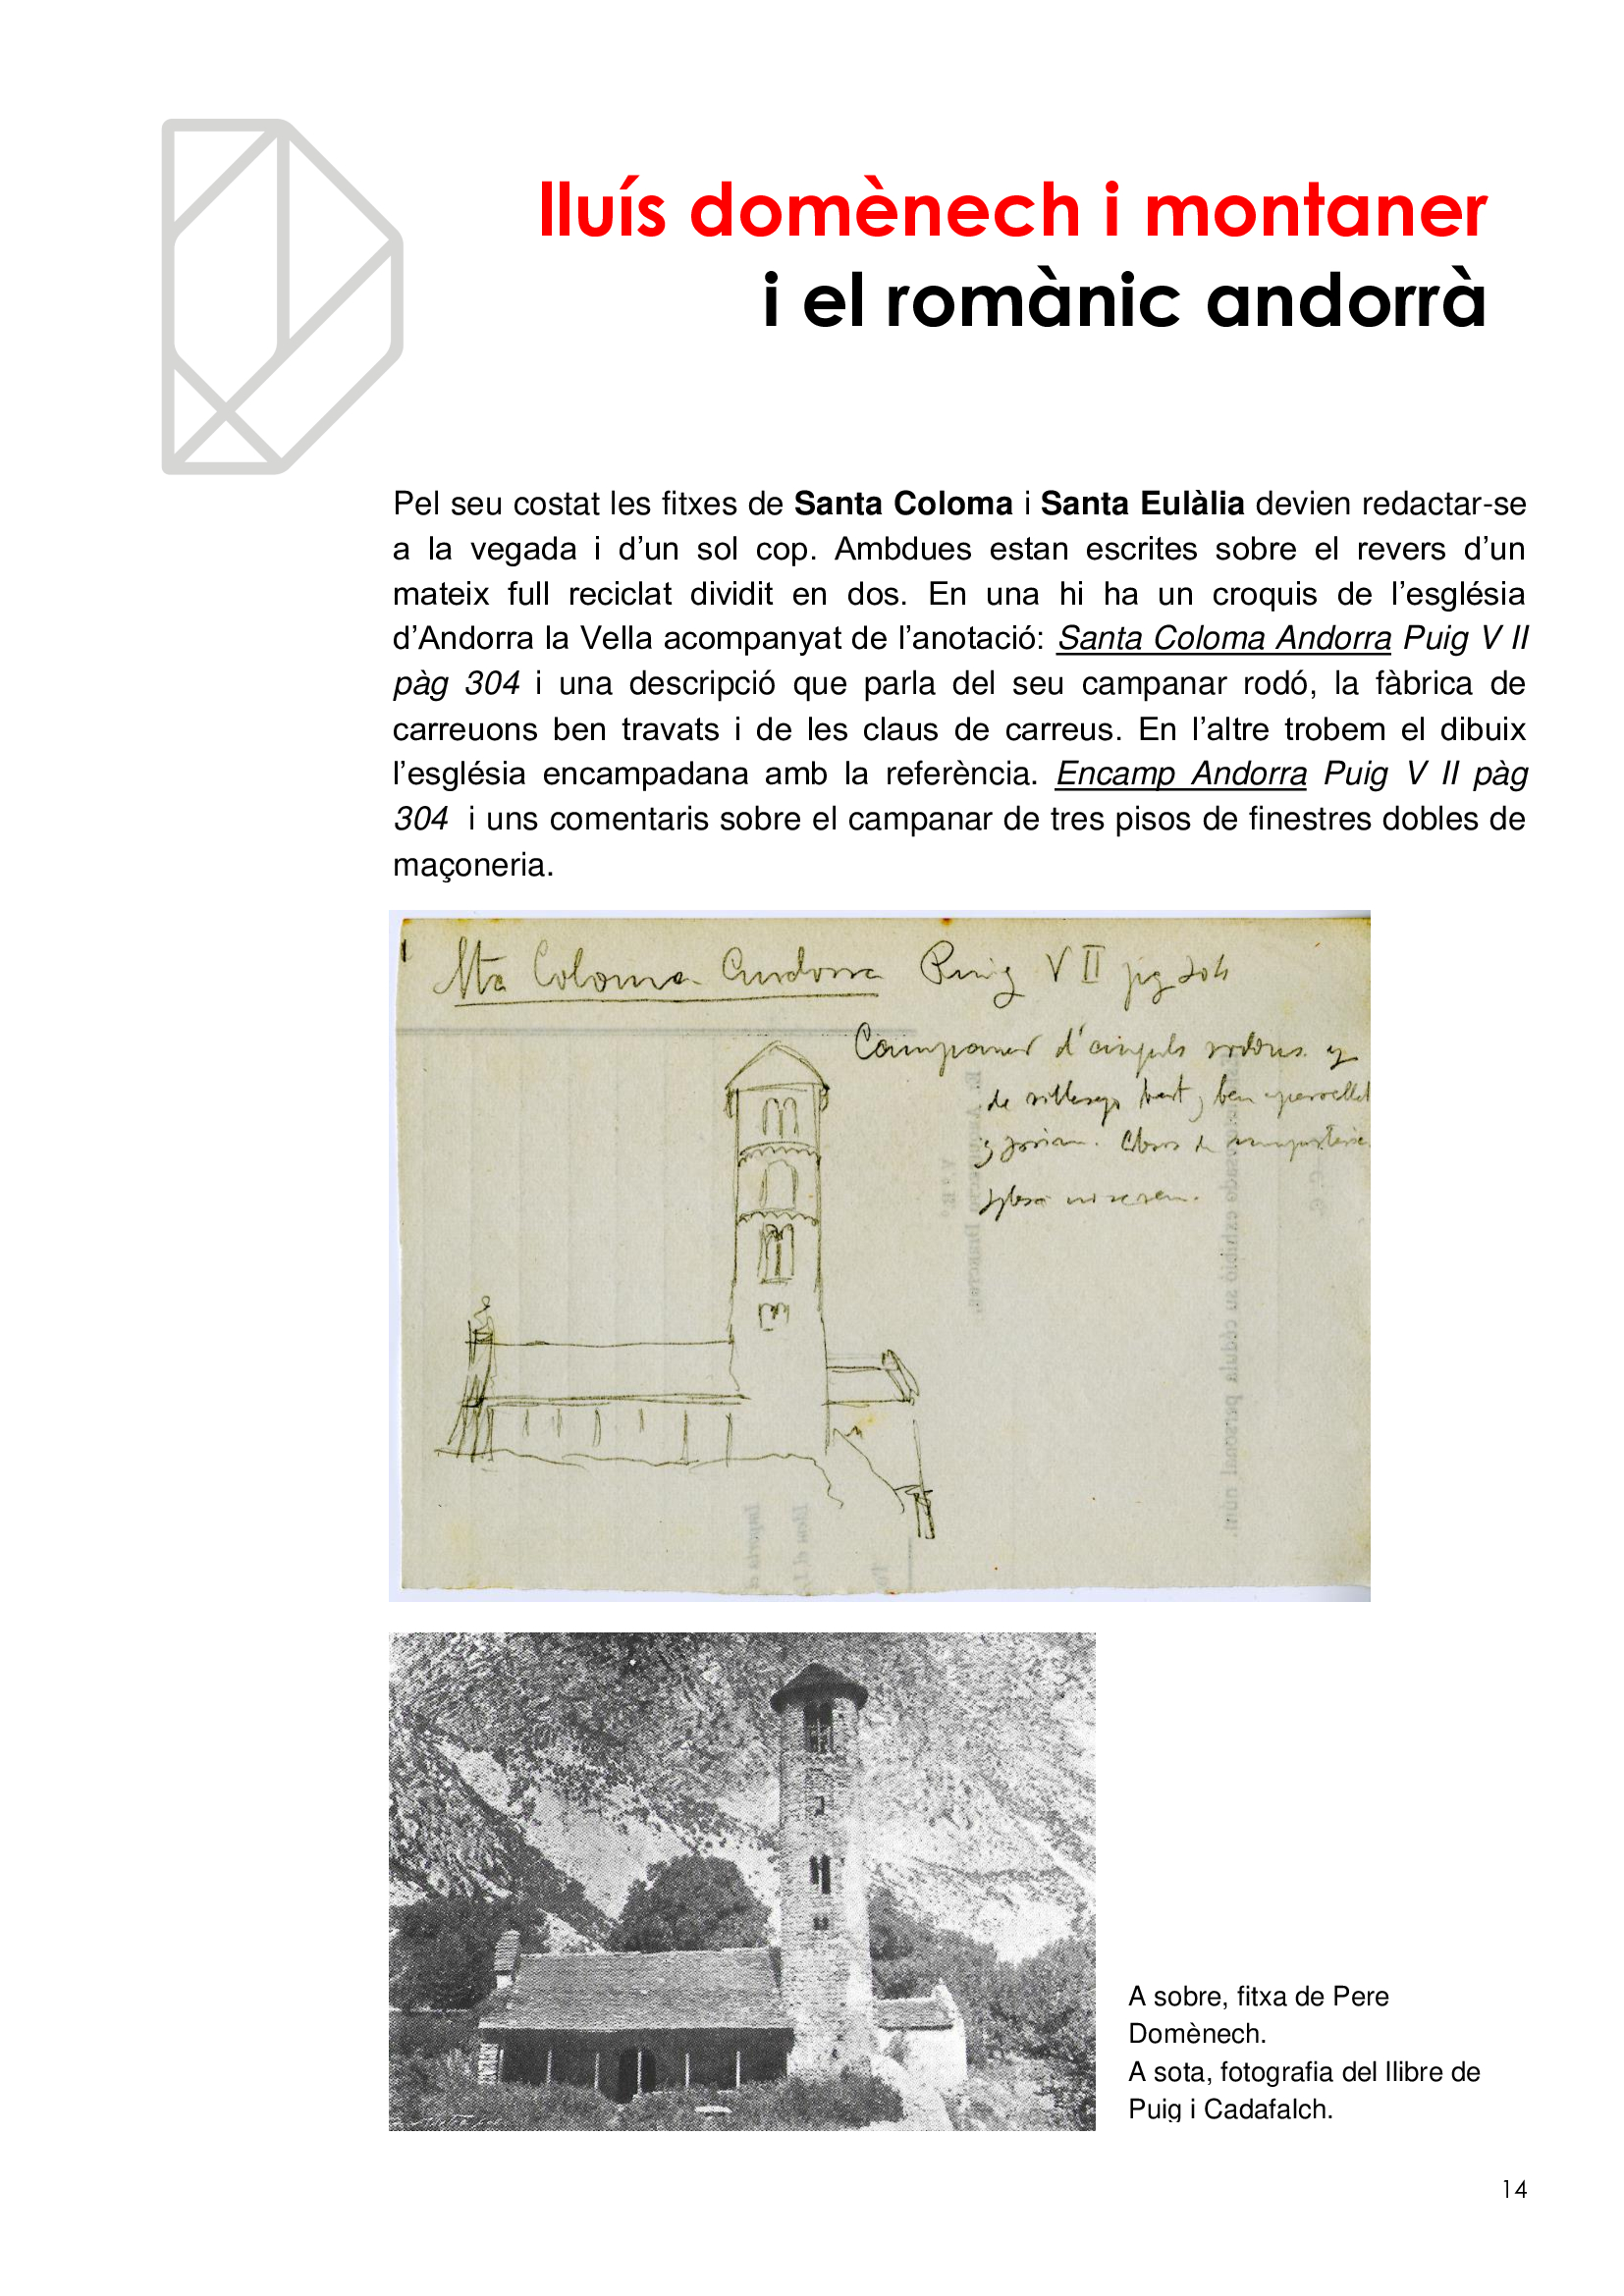 lluís domènech i montaner
i el romànic andorrà
Pel seu costat les fitxes de Santa Coloma i Santa Eulàlia devien redactar-se
a la vegada i d’un sol cop. Ambdues estan escrites sobre el revers d’un
mateix full reciclat dividit en dos. En una hi ha un croquis de l’església
d’Andorra la Vella acompanyat de l’anotació: Santa Coloma Andorra Puig V II
pàg 304 i una descripció que parla del seu campanar rodó, la fàbrica de
carreuons ben travats i de les claus de carreus. En l’altre trobem el dibuix
l’església encampadana amb la referència. Encamp Andorra Puig V II pàg
304 i uns comentaris sobre el campanar de tres pisos de finestres dobles de
maçoneria.
Sta Coloma Andorra Puig V II pg 304
Campanar d'anguls rodons y
de ben
y
A sobre, fitxa de Pere
Domènech.
A sota, fotografia del llibre de
Puig i Cadafalch.
14